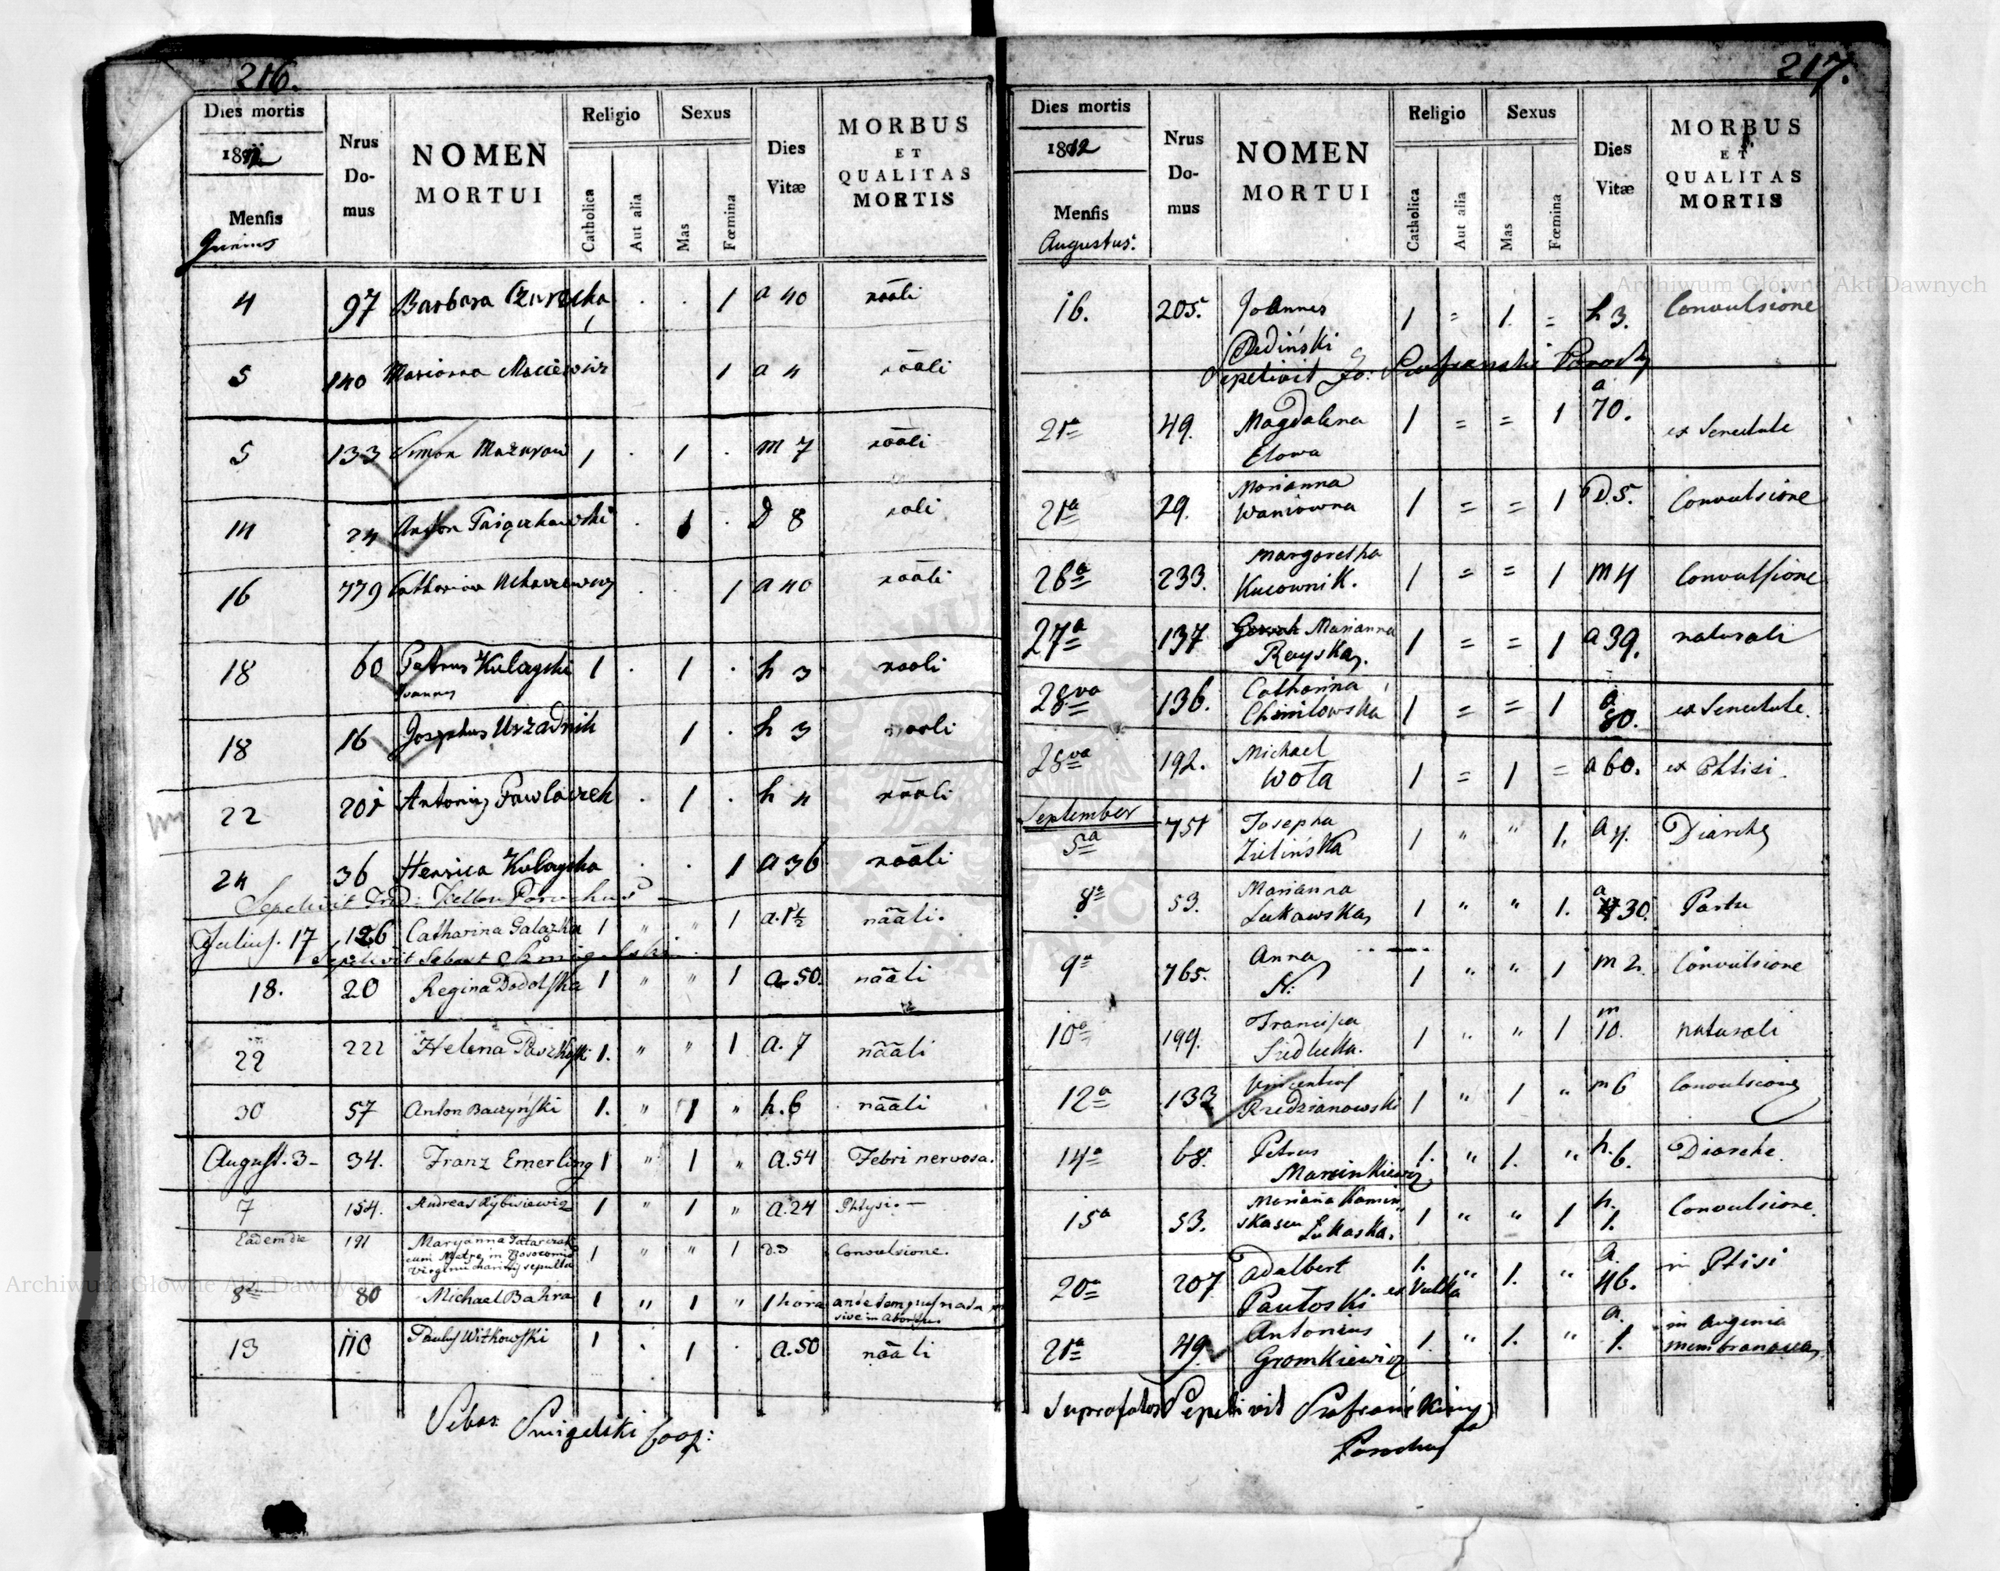 216.
Dies mortis
1812
Mensis
Nrus Do-mus
NOMEN MORTUI
Religio
Catholica
Aut alia
Sexus
Mas
Fœmina
Dies Vitæ
MORBUS ET QUALITAS MORTIS
Junius
4 97 Barbara 1 . . 1 a 40 nääli
5 140 Marianna Maciewicz 1 a 4 nääli
5 133 Simon Mazurow 1 . 1 . m 7 nääli
14 24 Anton . 1 . D 8 nali
16 779 Catharina . . 1 a 40 nääli
18 60 Petrus Kulayski 1 . 1 . h 3 naali
Joannes
18 16 Josephus Urzadnik 1 . h 3 naali
22 201 Antonius Pawlaczek . 1 . h 4 nääli
24 36 Henrica Kulayska . . 1 a 36 nääli
Sepelivit Keller Parochus
Julius. 17 126 Catharina Galazka 1 " " 1 a. 1½ nääli.
Sepelivit Sebast Smigelski
18. 20 Regina Dodolska 1 " " 1 a. 50. nääli
22 222 Helena 1. " " 1 a. 7 nääli
30 57 Anton Baczyński 1. " 1 " h. 6 nääli
August. 3- 34. Franz Emerling 1 " 1 " a. 54 Febri nervosa.
7 154. Andreas Rybisiewicz 1 " 1 " a. 24 Phtysi. -
Eadem die 191 Maryanna 1 " " 1 d. 3 Convulsione.
cum Matre in Nosocomio
Virginum sepulta
8va 80 Michael Bahra 1 " 1 " 1 hora ante tempus nata
sive in Aborsu.
13 110 Paulus Witkowski 1 . 1 . a. 50 nääli
Sebas Smigelski Coop:
217.
Dies mortis
1812
Mensis
Nrus Do-mus
NOMEN MORTUI
Religio
Catholica
Aut alia
Sexus
Mas
Fœmina
Dies Vitæ
MORBUS ET QUALITAS MORTIS
Augustus.
16. 205. Joannes 1 = 1. = h 3. Convulsione
Sepelivit Jo: Parochus
21a 49. Magdalena Elowa 1 = = 1 a 70. ex Senectute
21a 29. Marianna Waniowna 1 = = 1 D. 5. Convulsione
26a 233. Margaretha Kucownik. 1 = = 1 m 4 Convulsione
27a 137 Marianna Rayska. 1 = = 1 a 39. naturali
28va 136. Catharina Chmilowska 1 = = 1 a 80. ex Senectute.
28va 192. Michael Wota 1 = 1 = a 60. ex Phtisi.
September
5a 751 Josepha Zielińska 1 " " 1. a 4. Diarche
8a 53. Marianna Lukawska 1 " " 1. a 30. Partu
9a 765. Anna N: 1 " " 1 m 2. Convulsione
10a 199. Francisca Siedlecka. 1 " " 1 m 10. naturali
12a 133 Vincentius Rzedzianowski 1 " 1 " m 6 Convulsione
14a 68. Petrus Marcinkiewicz 1. " 1. " h. 6. Diarche.
15a 53. Mariana Kamin skaseu Lukaska. 1 " " 1 h. 1. Convulsione.
20a 207 Adalbert Pautoski ex Vulka 1. " 1. " a. 46. in Ptisi
21a 49. Antonius Gromkiewicz 1. " 1. " a. 1. in Angenia membranacea
Suprafatos Sepelivit Parochus
Archiwum Główne Akt Dawnych
Archiwum Główne Akt Dawnych